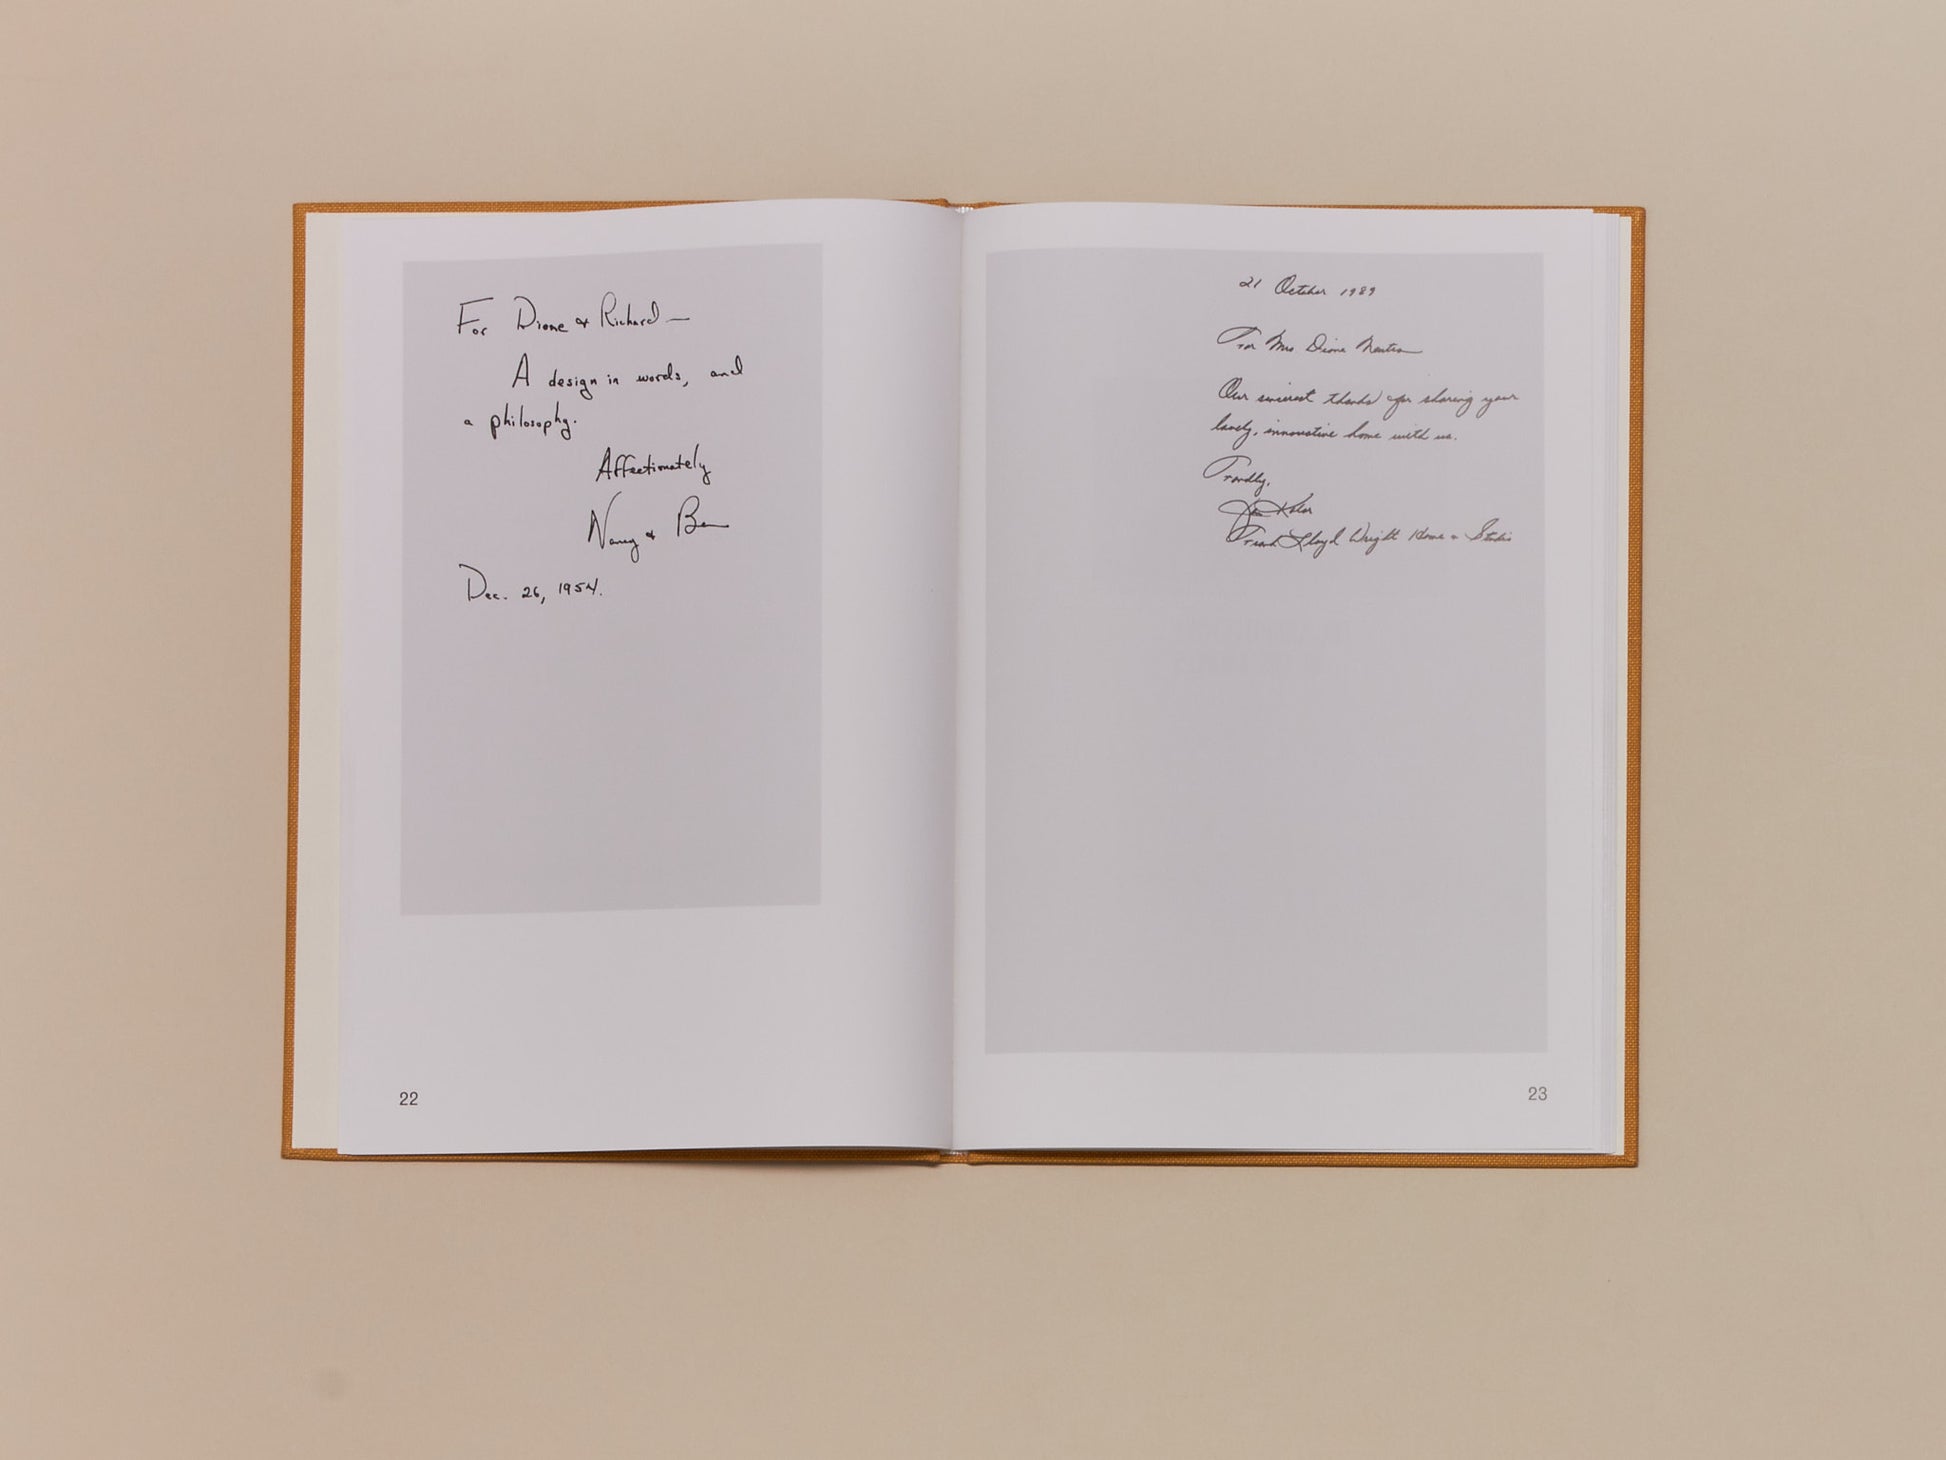 For Dione & Richard —
A design in words, and
a philosophy.
Affectionately
Nancy & Ben
Dec. 26, 1954.
22
21 October 1989
For Mrs. Dione Neutra
Our sincerest thanks for sharing your
lovely, innovative home with us.
Proudly,
Frank Lloyd Wright Home & Studio
23